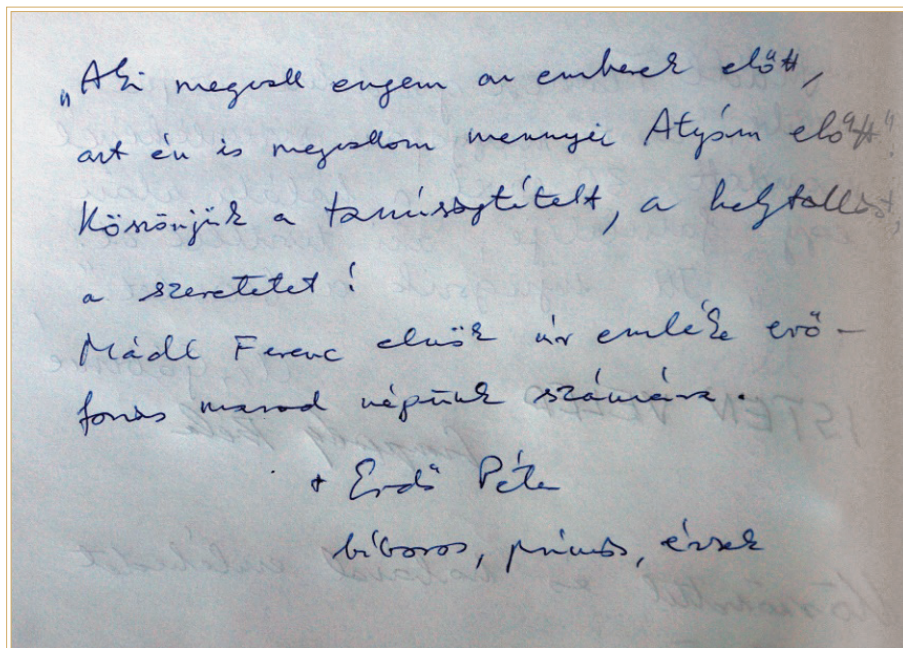 „Aki megvall engem az emberek előtt,
azt én is megvallom mennyei Atyám előtt".
Köszönjük a tanúságtételt, a helytállást,
a szeretetet!
Mádl Ferenc elnök úr emléke erő-
forrás marad népünk számára.
+ Erdő Péter
bíboros, prímás, érsek